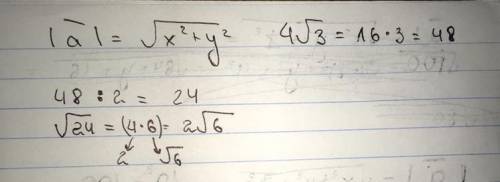 |a̅| = √x² + y² 4√3 = 16·3 = 48
48 : 2 = 24
√24 = (4·6) = 2√6
2 √6